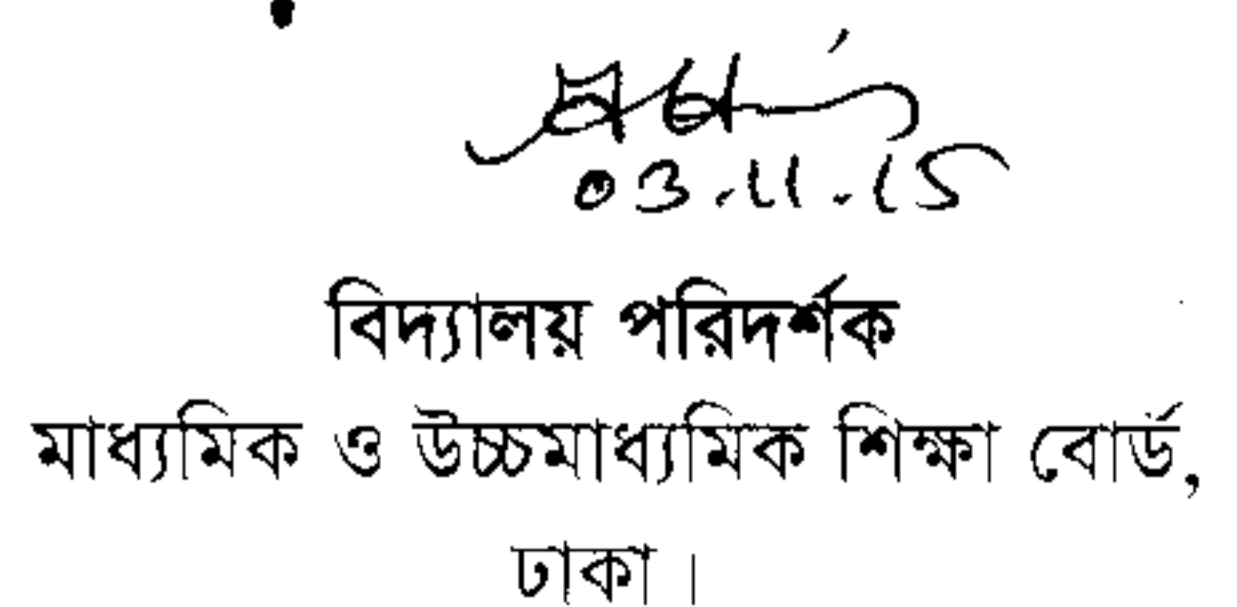 03.11.15
বিদ্যালয় পরিদর্শক
মাধ্যমিক ও উচ্চমাধ্যমিক শিক্ষা বোর্ড,
ঢাকা।